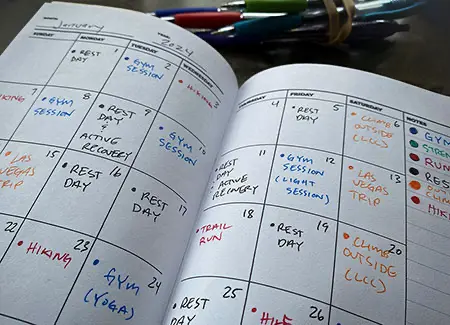 MONTH: January YEAR: 2024
SUNDAY MONDAY TUESDAY WEDNESDAY
1
• REST
DAY
2
• GYM
SESSION
3
• HIKING
7
HIKING
8
• GYM
SESSION
9
• REST
DAY
&
ACTIVE
RECOVERY
10
• GYM
SESSION
• LAS
VEGAS
TRIP
15
• REST
DAY
16
• REST
DAY
17
22
• HIKING
23
• GYM
(YOGA)
24
THURSDAY FRIDAY SATURDAY NOTES
4
• REST
DAY
5
• CLIMB
OUTSIDE
(LCC)
6
• REST
DAY
• ACTIVE
RECOVERY
11
• GYM
SESSION
(LIGHT
SESSION)
12
• LAS
VEGAS
TRIP
13
• TRAIL
RUN
18
• REST
DAY
19
• CLIMB
OUTSIDE
(LCC)
20
• REST
DAY
25
• HIKE
26
• GYM
• RES
• HIKI